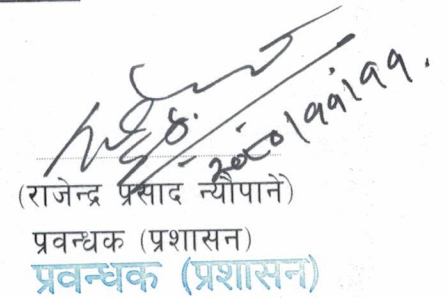 २०८०।११।११.
(राजेन्द्र प्रसाद न्यौपाने)
प्रवन्धक (प्रशासन)
प्रवन्धक (प्रशासन)